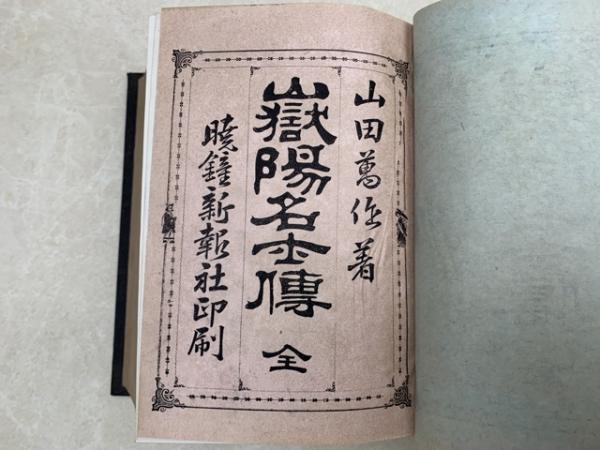 山田萬作著
嶽陽名士傳 全
曉鐘新報社印刷